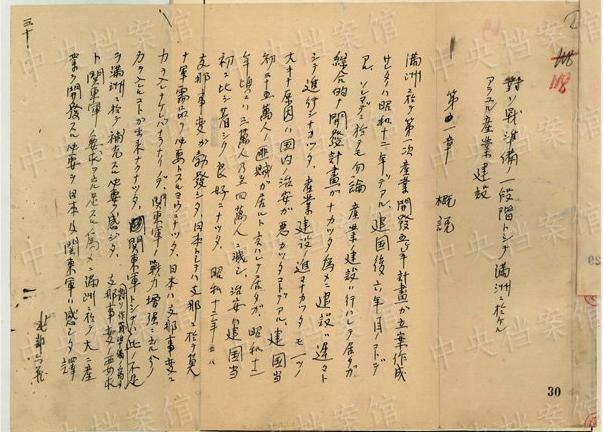 對ソ戰準備ノ一段階トシテ滿洲ニ於ケル
アラユル産業建設
第一章 概説
滿洲ニ於テ第一次産業開發五ケ年計畫が立案作成
サレタノハ昭和十二年デアル、建国後六年目デアル
ソレマデニ於テモ勿論産業建設ハ行ハレテ居タガ
綜合的ナ開發計畫ガナカツタ為メニ建設ハ遅々ト
シテ進行シナカツタ、産業建設ノ進マナカツタモ一ツノ
大キナ原因ハ国内ノ治安ガ悪カツタコトデアル、建国當
初ニ十五萬人ノ匪賊ガ居ルト云ハレテ居タガ、昭和十一
年頃ニハ三萬人乃至四萬人ニ減ジ、治安ハ建国當
初ニ比シ著シク良好ニナツタ、昭和十二年ニハ
支那事変ガ勃発シタ、日本トシテハ支那ニ於テ莫大
ナ軍需品ヲ必要トスルヨウニナツタ、日本ハ支那事変ニ
力ヲ入レナケレバナラナイノデ、関東軍ノ戰力増強ニハ余リ
力ヲ入レルコトガ出来ナクナツタ、関東軍トシテハ此ノ不足
ヲ滿洲ニ於テ補充スル必要ヲ感ジタ、支那事変ノ要求
ト関東軍ノ要求ヲ充足スル為メニ滿洲ニ於テ大ニ産
業ヲ開發スル必要ヲ日本及関東軍ハ感ジタ譯
三十
30
中央档案馆